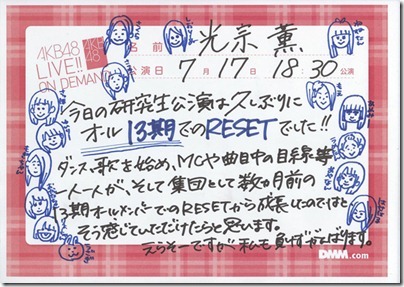 AKB48
LIVE!!
ON DEMAND
AKB48
名前 光宗 薫
公演日 7月17日 18:30 公演
今日の研究生公演は久しぶりに
オール13期でのRESETでした!!
ダンス、歌を始め、MCや曲目中の目線等
一人一人が、そして集団として数ヶ月前の
13期オールメンバーでのRESETから成長したのではと
そう感じていただけたらと思います。
えらそーですが私も負けずがんばります。
DMM.com